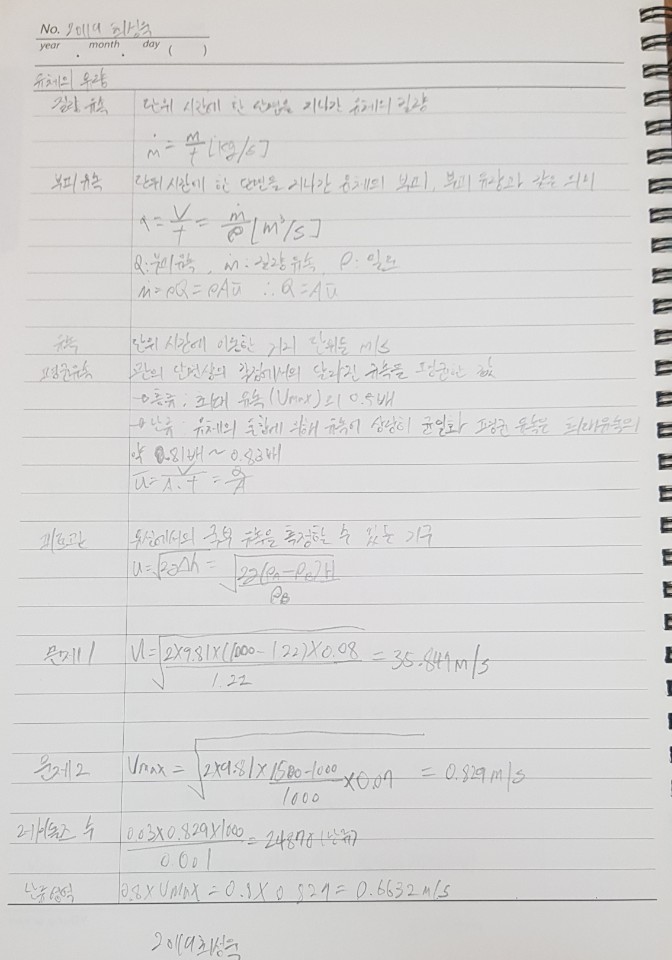 No. 2019 최성욱
year . month . day ( )
유체의 유량
질량 유속 단위 시간에 한 단면을 지나간 유체의 질량
ṁ = m/t [kg/s]
부피 유속 단위 시간에 한 단면을 지나간 유체의 부피, 부피 유량과 같은 의미
= V/t = ṁ/ρ [m³/s]
Q: 부피유속, ṁ: 질량유속, ρ: 밀도
ṁ = ρQ = ρAū ∴ Q = Aū
유속 단위 시간에 이동한 거리 단위는 m/s
평균유속 관의 단면상의 각점에서의 달라진 유속을 평균한 값
층류: 최대 유속(Umax)의 0.5배
난류: 유체의 혼합에 의해 유속이 상당히 균일화 평균 유속은 최대유속의
약 0.81배 ~ 0.83배
ū = V/A·t = Q/A
피토관 유속을 측정할 수 있는 기구
u = √2gΔh = √2g(ρA-ρB)H/ρB
문제1 U = √2×9.81×(1000-1.22)×0.08/1.22 = 35.849m/s
문제2 Umax = √2×9.81×1500-1000/1000×0.07 = 0.829m/s
레이놀즈 수 0.03×0.829×1000/0.001 = 24870 (난류)
난류영역 0.8×Umax = 0.8×0.829 = 0.6632m/s
최성욱